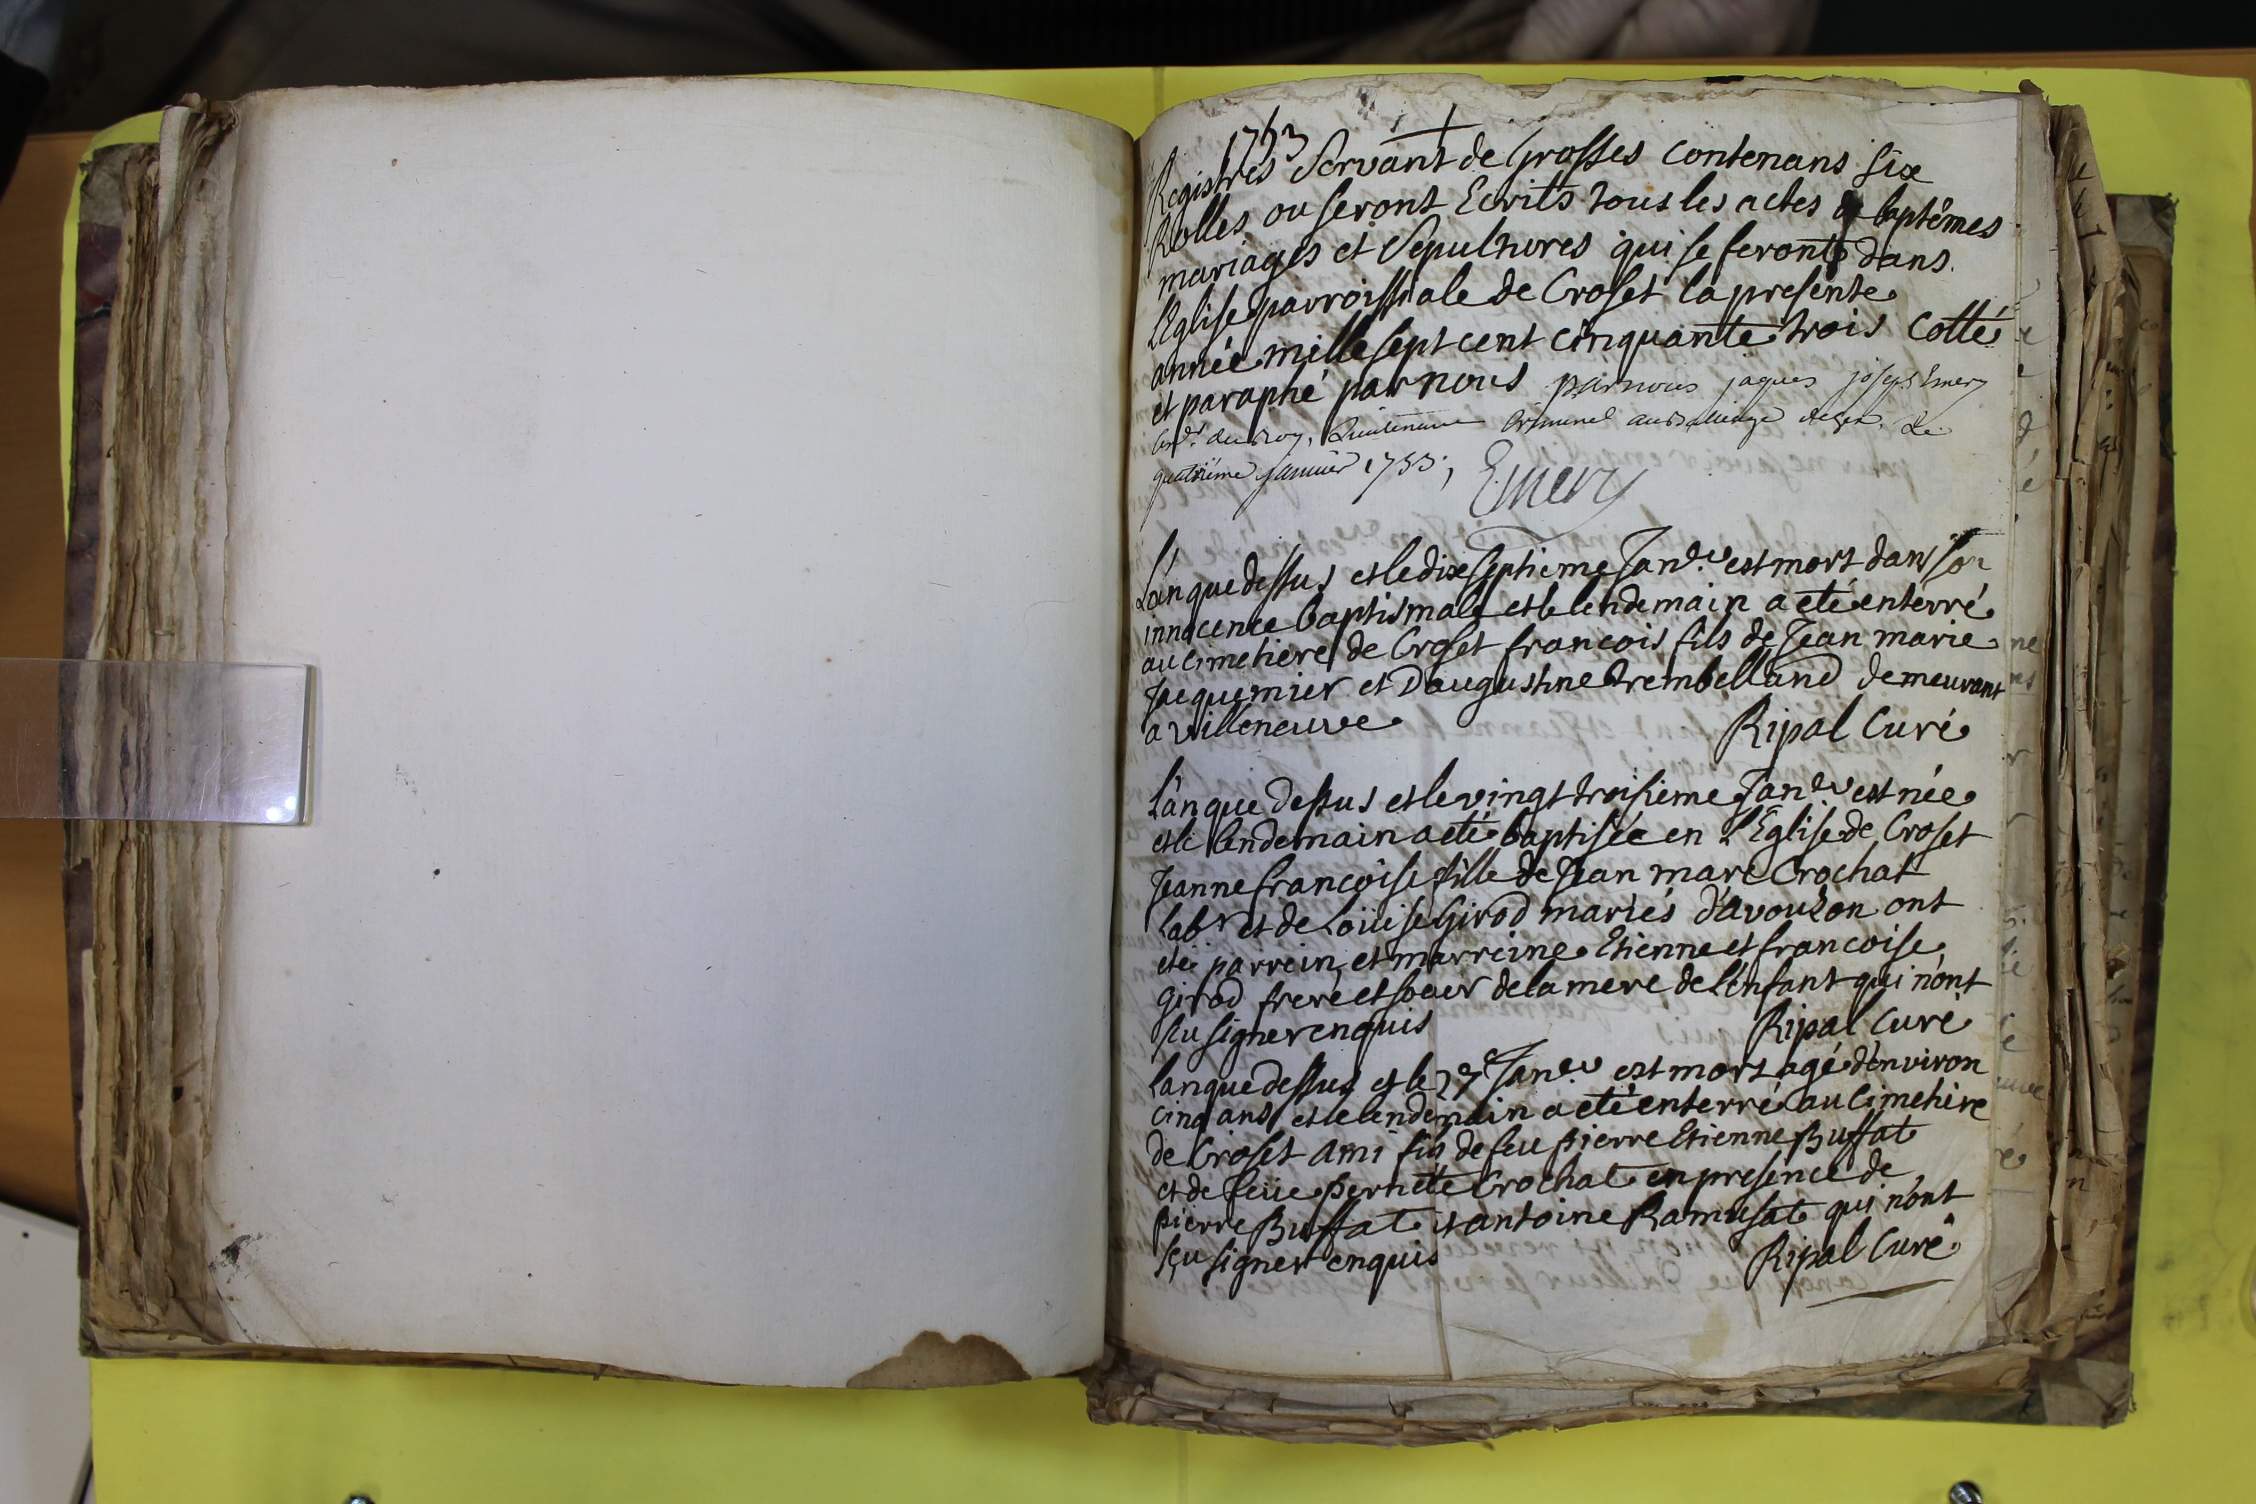 1753 +
Registres Servant de Grosses contenans six
Rolles ou seront Ecrits tous les actes de baptêmes
mariages et Sepultures qui se feront dans
l'Eglise parroissiale de Croset la presente
année mille sept cent cinquante trois cotté
et paraphé par nous par nous jaques joseph Emery
du Roy, Lieutenant Criminel au Balliage de Gex, Le
quatrième janvier 1753,
Emery
L'an que dessus et le dix septieme Janv.er est mort dans son
innocence baptismale et le lendemain a eté enterré
au cimetiere de Croset francois fils de Jean marie
Jacquemier et D'augustine trembelland demeurant
a villeneuve Ripal Curé
L'an que dessus et le vingt troisieme Janv.er est née
et le lendemain a eté baptisée en l'Eglise de Croset
Jeanne francoise fille de Jean marc Crochat
lab.r et de Loüise Girod mariés d'avouson ont
eté parrein et marreine Etienne et francoise
Girod frere et soeur de la mere de l'enfant qui n'ont
sçu signer enquis Ripal Curé
l'an que dessus et le 27 Janv.er est mort agé d'environ
cinq ans et le lendemain a eté enterré au Cimetiere
de Croset ami fils de feu pierre Etienne Buffat
et de feüe pernete Crochat en presence de
pierre Buffat et antoine Ramusat qui n'ont
sçu signer enquis Ripal Curé